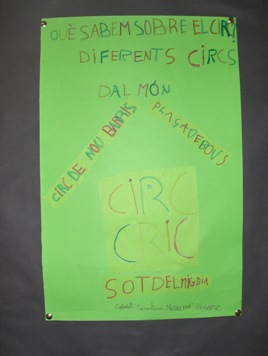 QUÈ SABEM SOBRE EL CIRC?
DIFERENTS CIRCS
DAL MÓN
CIRC DE NOU BARRIS
PLAÇA DE BOUS
CIRC
CRIC
SOT DEL MIGDIA
Carolina